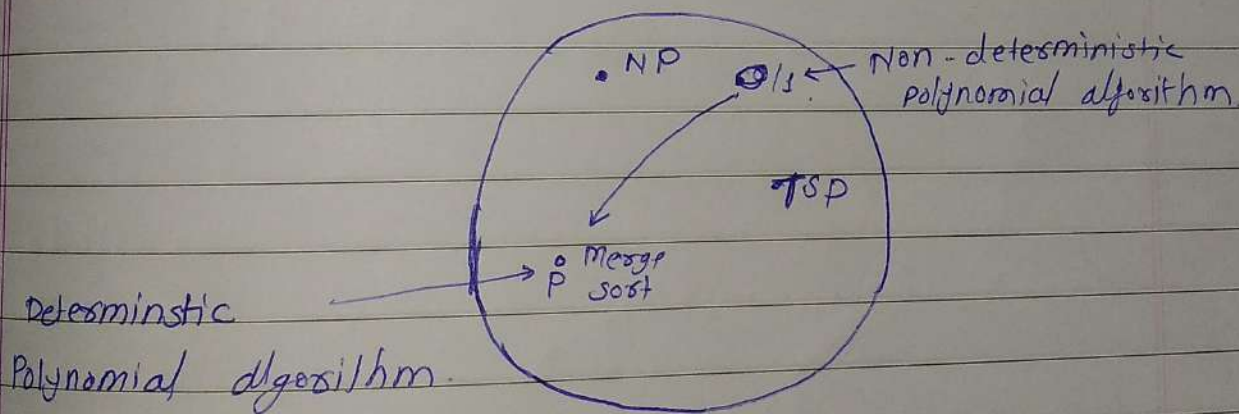 • NP
0/1 ← Non-deterministic
polynomial algorithm
TSP
Merge
P sort
Determinstic
Polynomial algorithm.